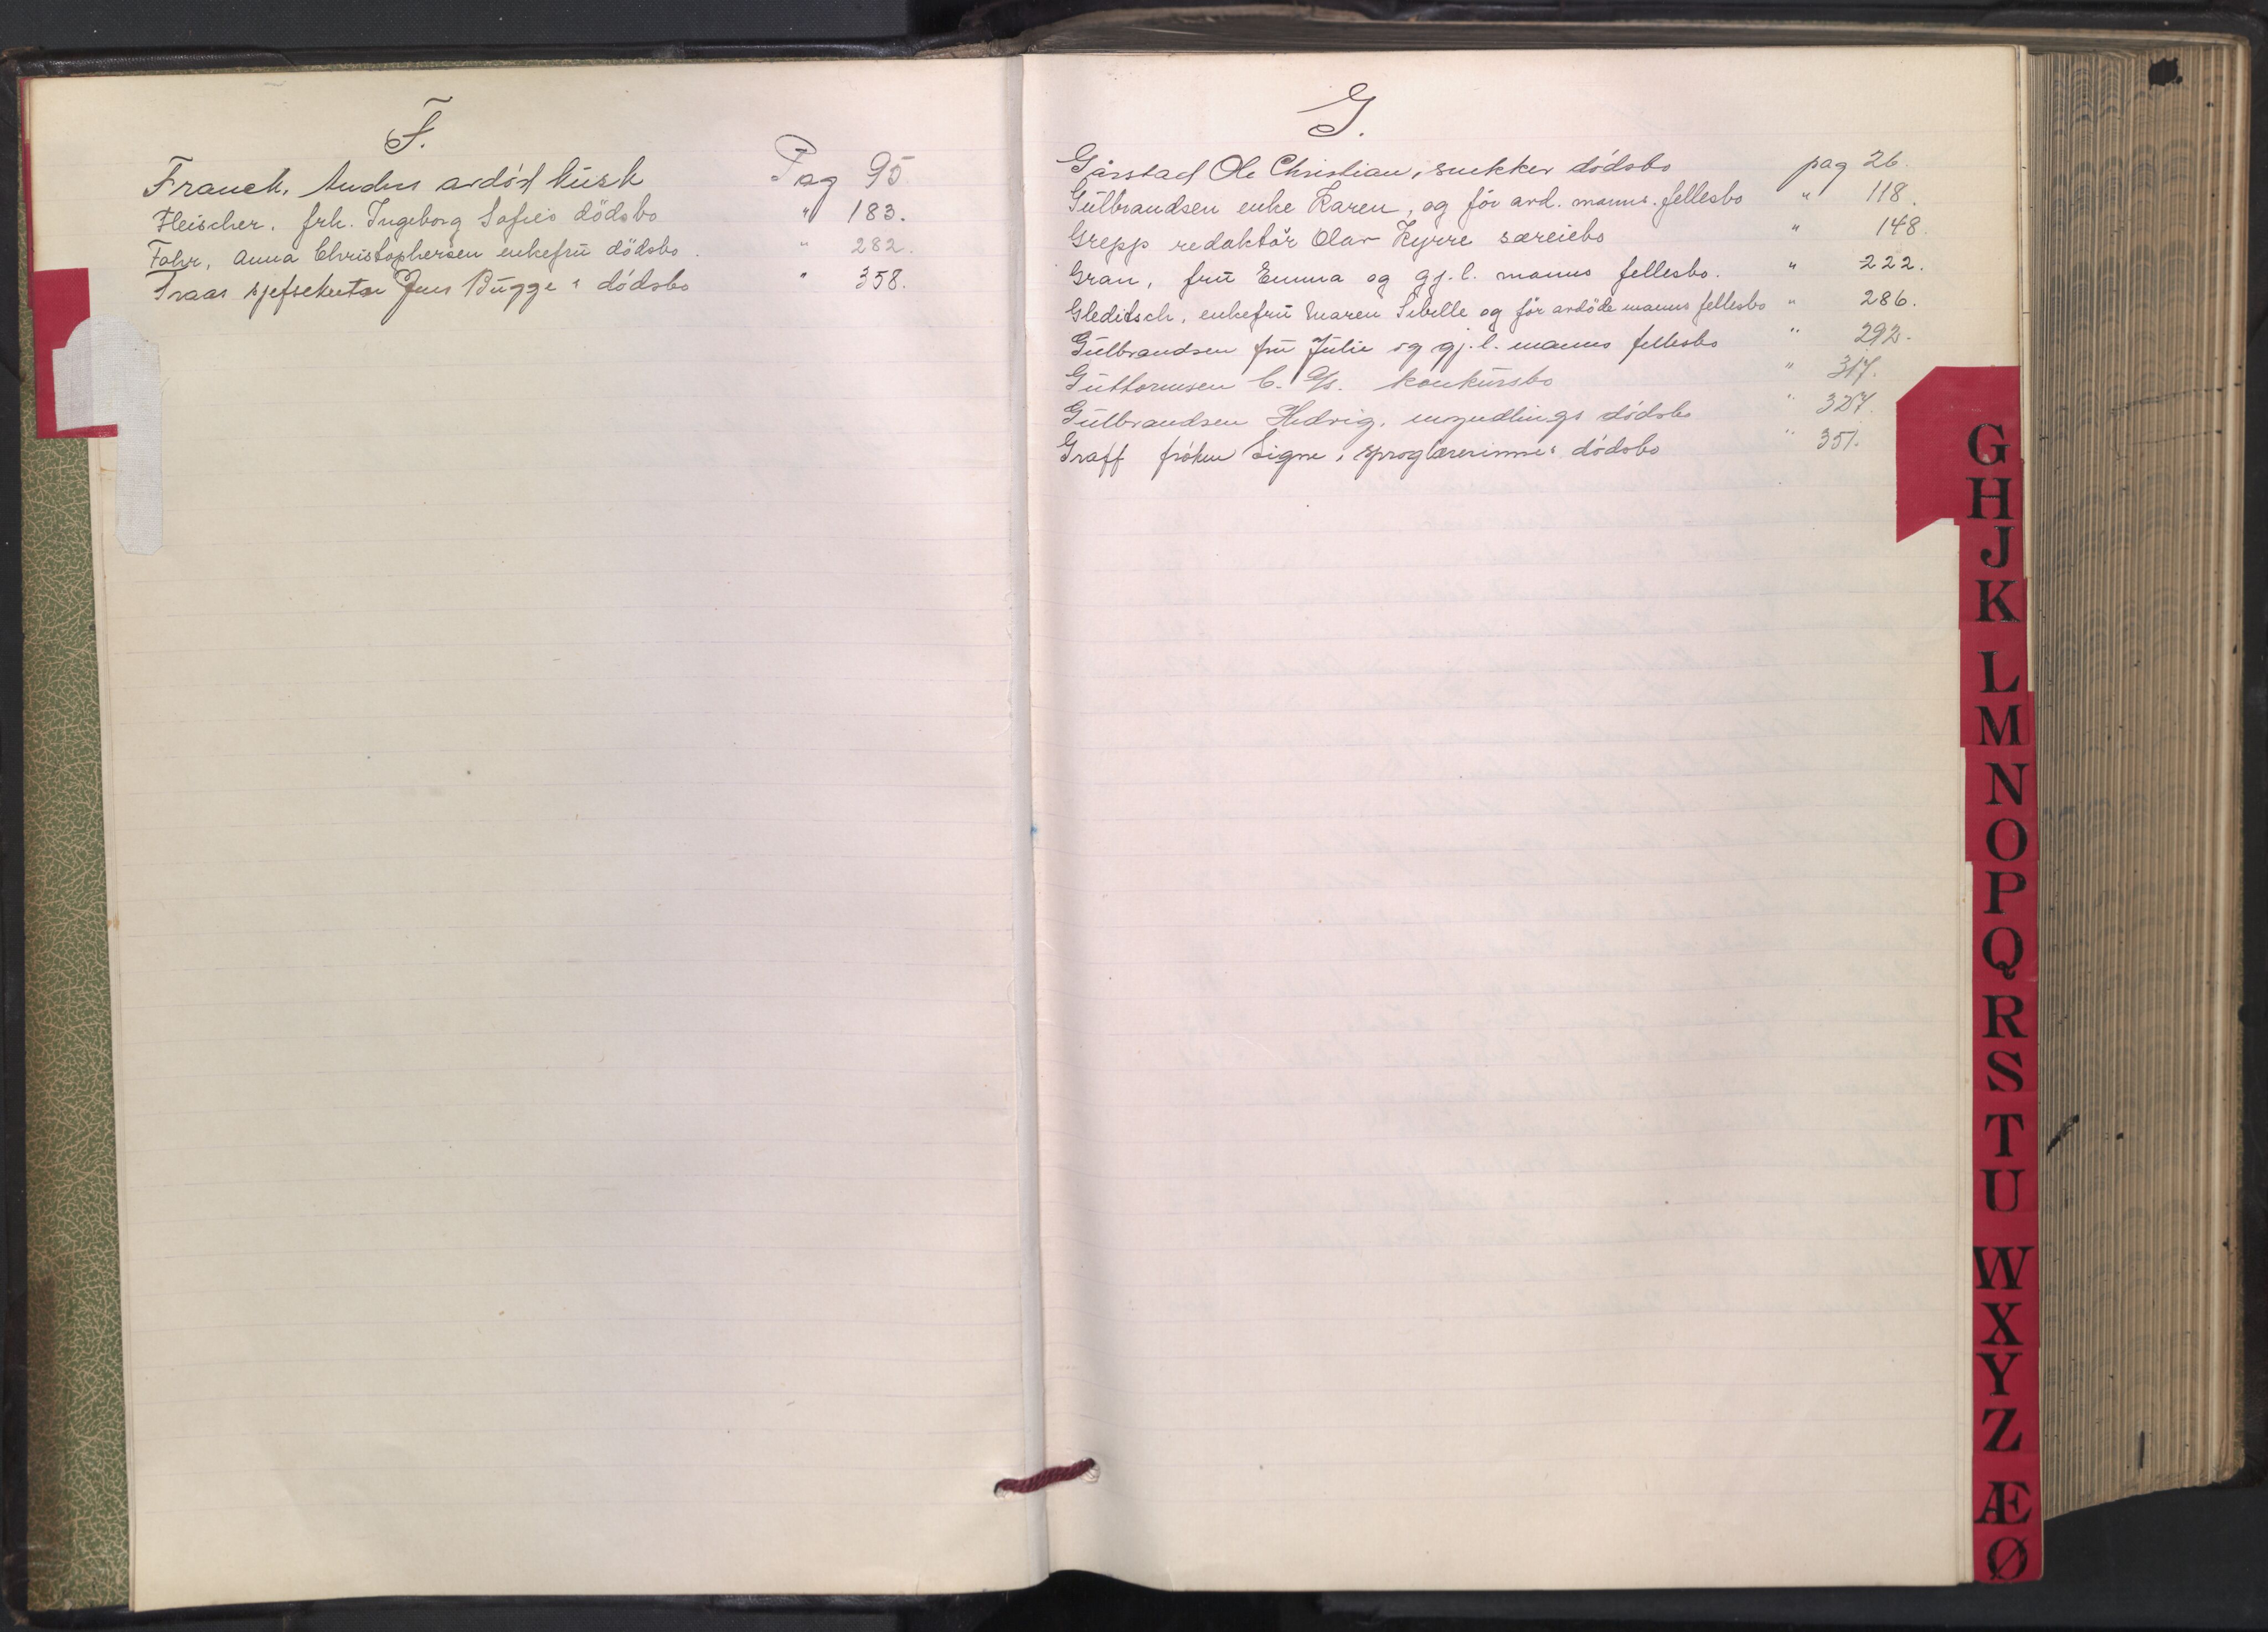 F.
Franck, Anders avdød kusk Pag 95
Fleischer, frk. Ingeborg Sofies dödsbo " 183.
Fahr, Anna Christophersen enkefrü dödsbo. " 282.
Fraas sjefsekretær Jens Bügge s dødsbo " 358.
G.
Gårstad Ole Christian, snekker dødsbo pag 26.
Gülbrandsen enke Karen, ogför avd. manns. fellesbo " 118.
Grepp redaktör Olav Kyrre særeiebo " 148.
Gran, frü Emma og gj. l. manns fellesbo. " 222.
Gleditsch, enkefrü Maren Sibelle og för avdöde manns fellesbo " 286.
Gülbrandsen frü Jülie og gj. l. manns fellesbo " 292.
Güttormsen C. G/s. konkürsbo " 317.
Gülbrandsen Hedvig, umyndlings dödsbo " 327.
Graff frøken Signe, sproglærerinne s dödsbo " 351.
G
H
J
K
L
M
N
O
P
Q
R
S
T
U
W
X
Y
Z
Æ
Ø